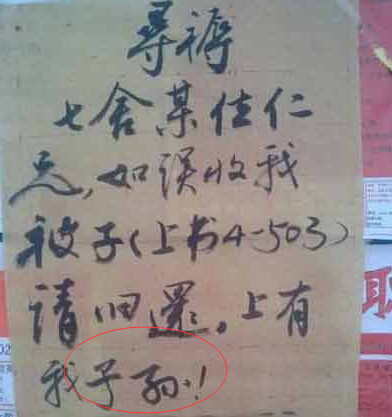 尋褥
七舍某佳仁
兄,如误收我
被子(上书4-503)
请归還。上有
我子孙!